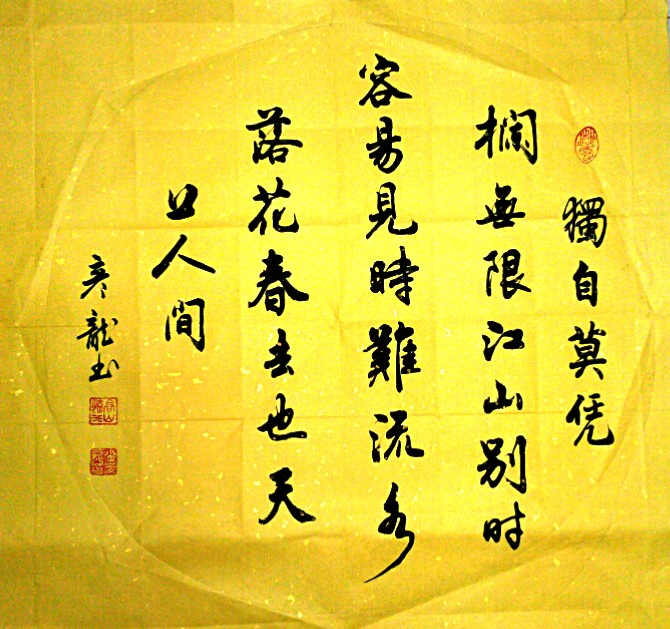 獨自莫凭
欄無限江山别时
容易見時難流水
落花春去也天
上人间
彦龍书